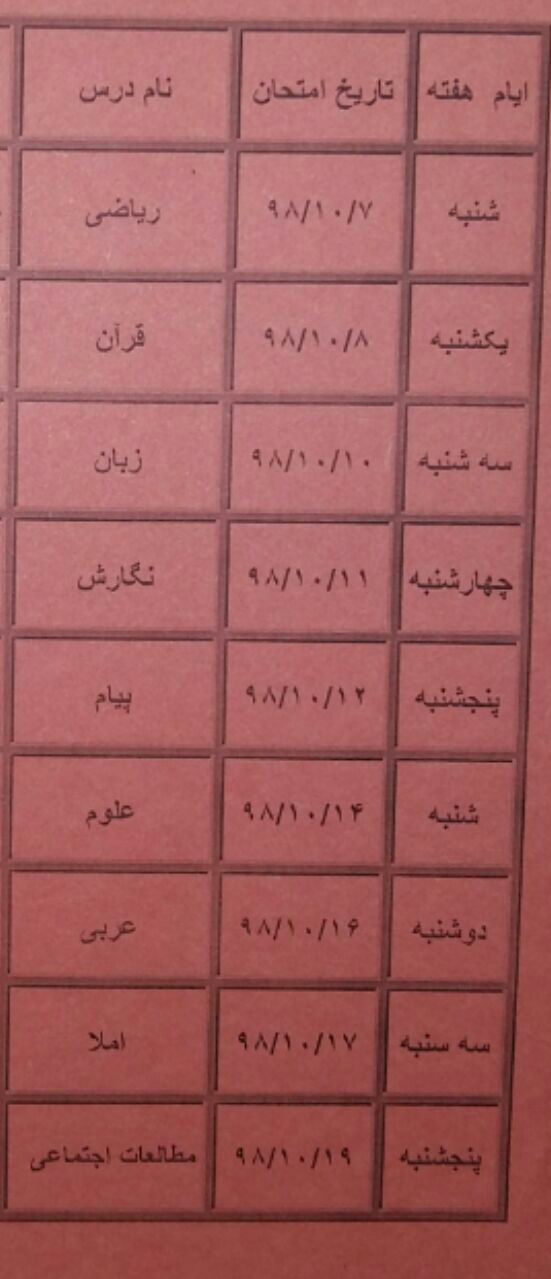 ایام هفته تاریخ امتحان نام درس
شنبه ۹۸/۱۰/۷ ریاضی
یکشنبه ۹۸/۱۰/۸ قرآن
سه شنبه ۹۸/۱۰/۱۰ زبان
چهارشنبه ۹۸/۱۰/۱۱ نگارش
پنجشنبه ۹۸/۱۰/۱۲ پیام
شنبه ۹۸/۱۰/۱۴ علوم
دوشنبه ۹۸/۱۰/۱۶ عربی
سه سنبه ۹۸/۱۰/۱۷ املا
پنجشنبه ۹۸/۱۰/۱۹ مطالعات اجتماعی